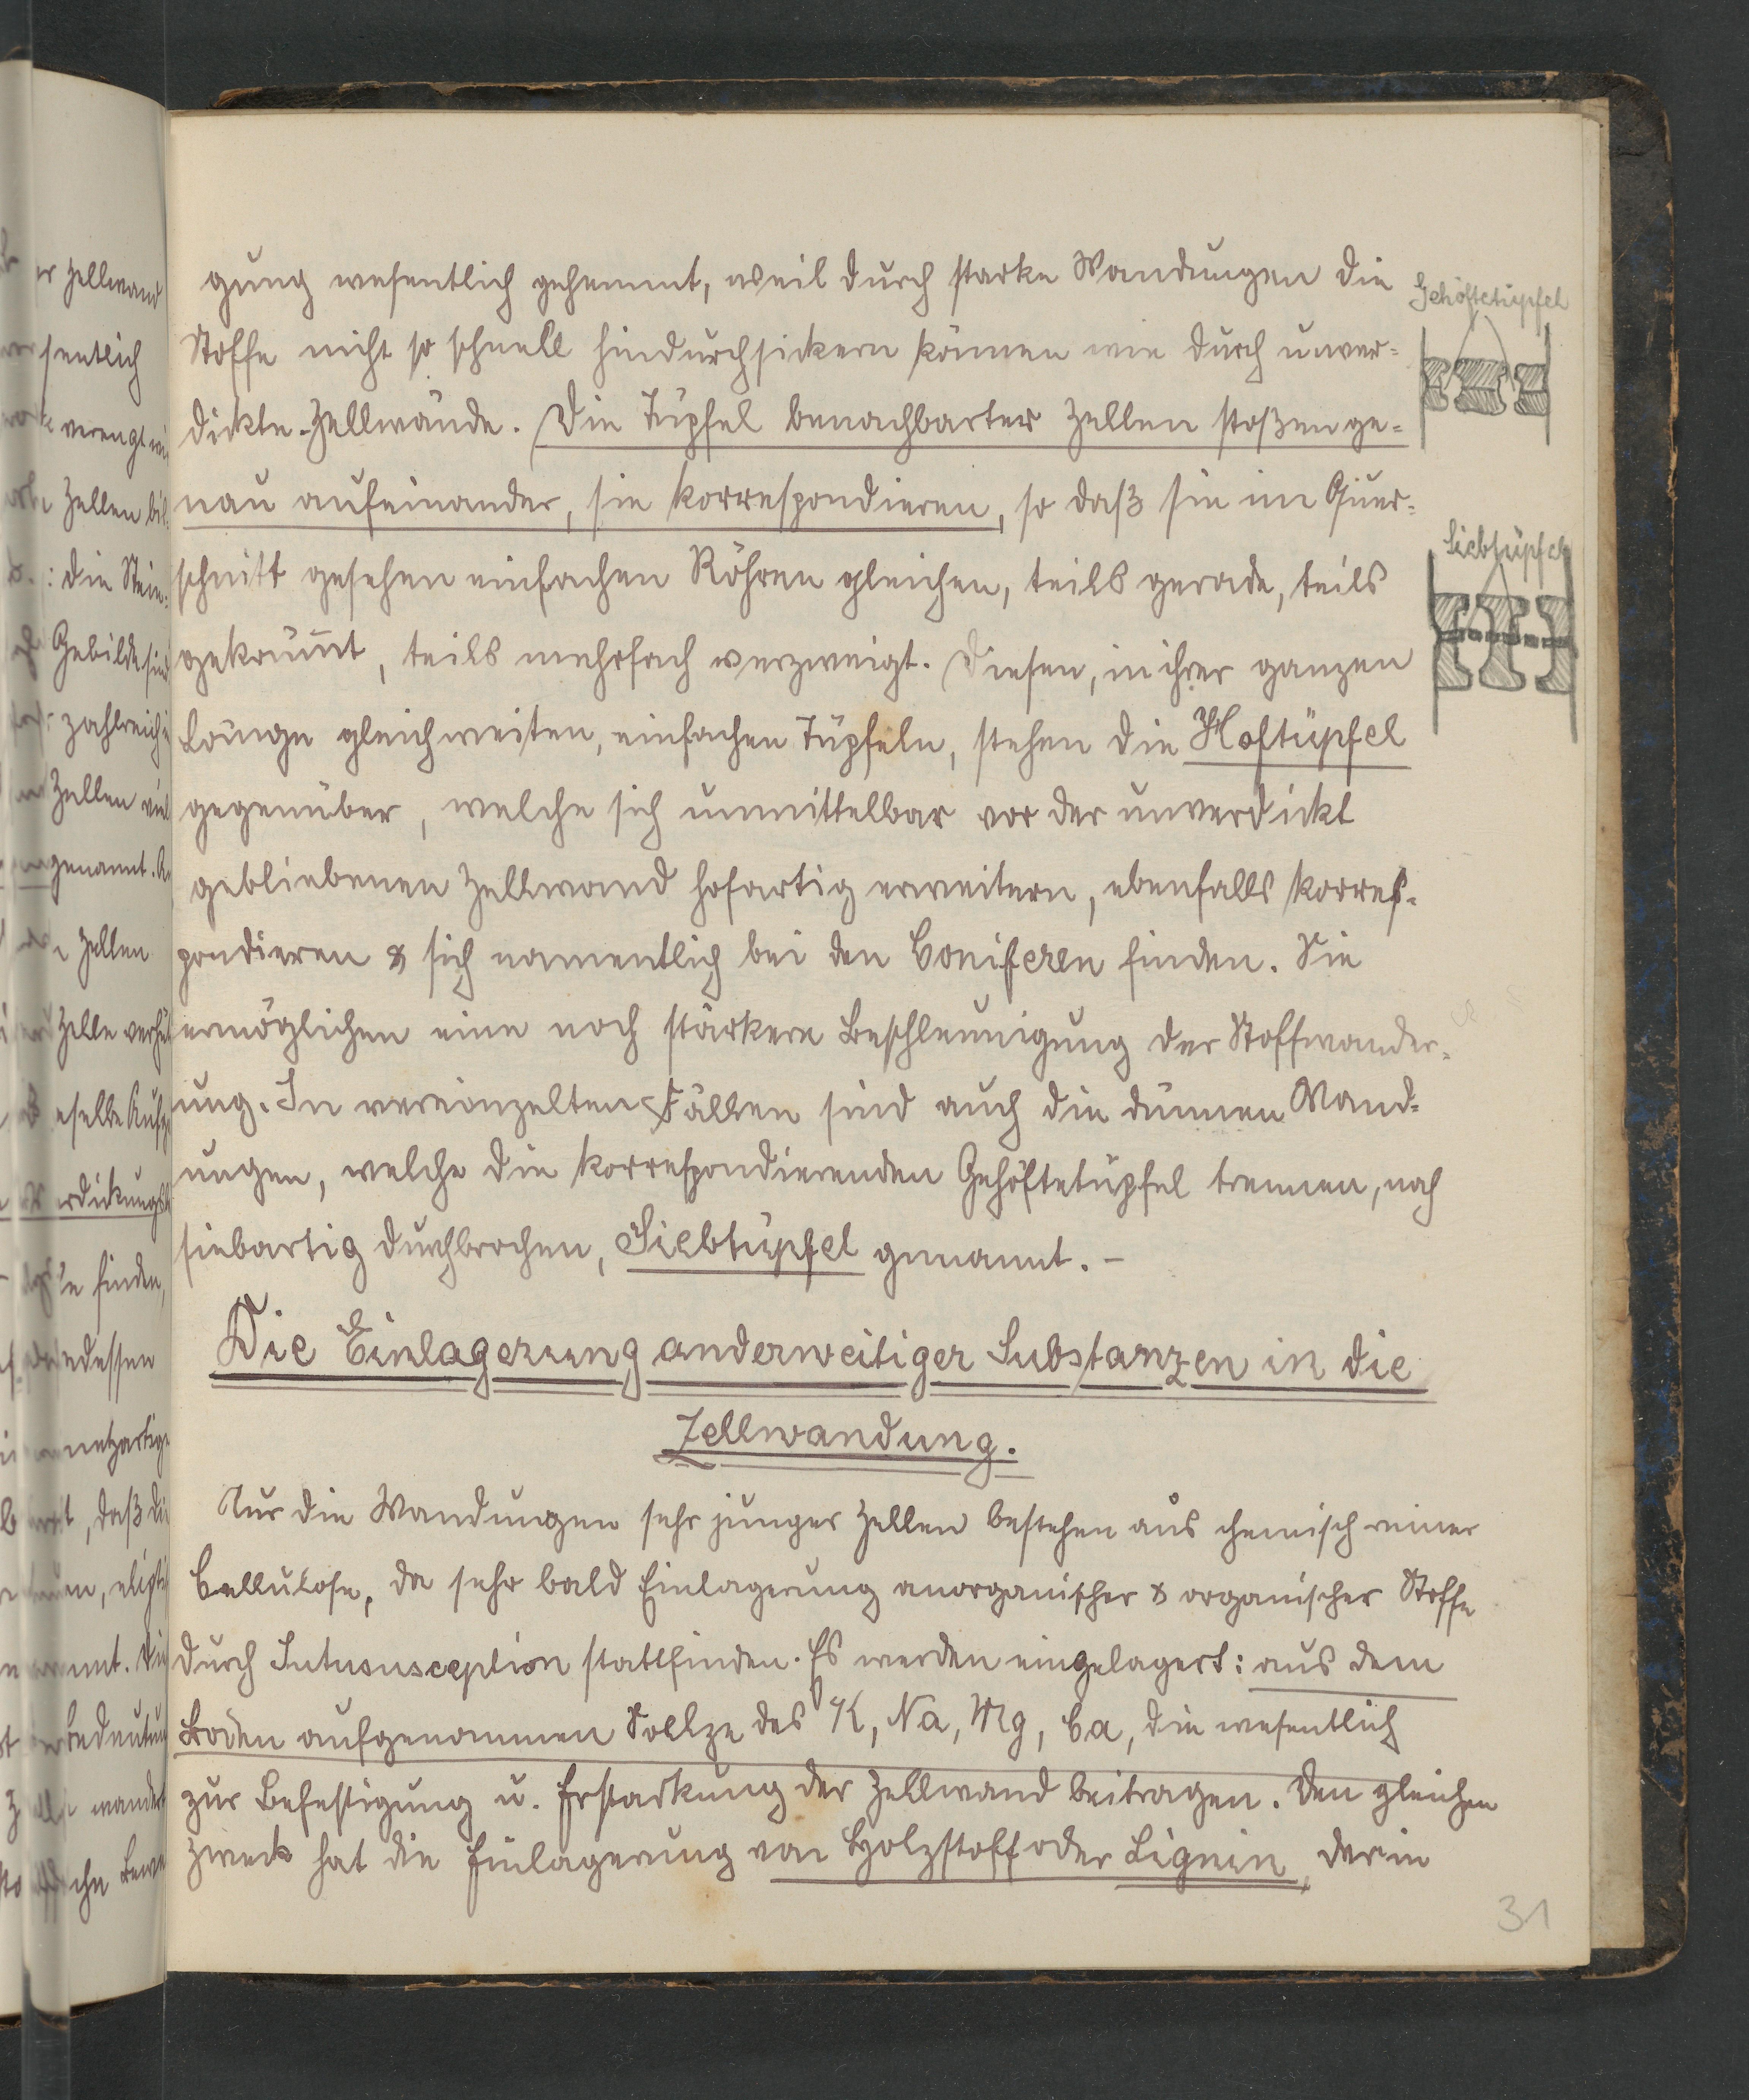 gung wesentlich gehemmt, weil durch starke Wandungen die
Stoffe nicht so schnell hindurchsickern können wie durch unver-
dickte Zellwände. Die Tüpfel benachbarter Zellen stoßen ge-
nau aufeinander, sie korrespondieren, so daß sie im Quer-
schnitt gesehen einfachen Röhren gleichen, teils gerade, teils
gekrümmt, teils mehrfach verzweigt. Diesen, in ihrer ganzen
Länge gleichweiten, einfachen Tüpfeln, stehen die Hoftüpfel
gegenüber, welche sich unmittelbar vor der unverdickt
gebliebenen Zellwand hofartig erweitern, ebenfalls korres-
pondieren & sich namentlich bei den Coniferen finden. Sie
ermöglichen eine noch stärkere Beschleunigung der Stoffwander-
ung. In vereinzelten Fällen sind auch die dünnen Wand-
ungen, welche die korrespondierenden Gehöftetüpfel trennen, noch
siebartig durchbrochen, Siebtüpfel genannt. –
Die Einlagerung anderweitiger Substanzen in die
Zellwandung.
Nur die Wandungen sehr junger Zellen bestehen aus chemisch reiner
Cellulose, da sehr bald Einlagerung anorganischer & organischer Stoffe
durch Intususception stattfinden. Es werden eingelagert: aus dem
Boden aufgenommen Salze des K, Na, Mg, Ca, die wesentlich
zur Befestigung u. Erstarkung der Zellwand beitragen. Den gleichen
Zweck hat die Einlagerung von Holzstoff oder Lignin, der in
Gehöftetüpfel
Siebtüpfel
31
er Zellwand
sentlich
verengt
Zellen bil-
: die Stein-
Gebilde sind
zahlreich
Zellen
genannt.
Zellen
Zelle
eselbe
finden,
netzartig
, daß di